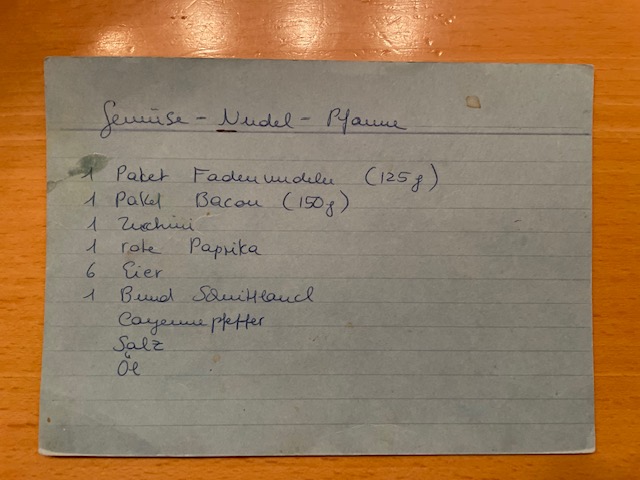 Gemüse - Nudel - Pfanne
1 Paket Fadennudeln (125g)
1 Paket Bacon (150g)
1 Zuchini
1 rote Paprika
6 Eier
1 Bund Schnittlauch
Cayennepfeffer
Salz
Öl